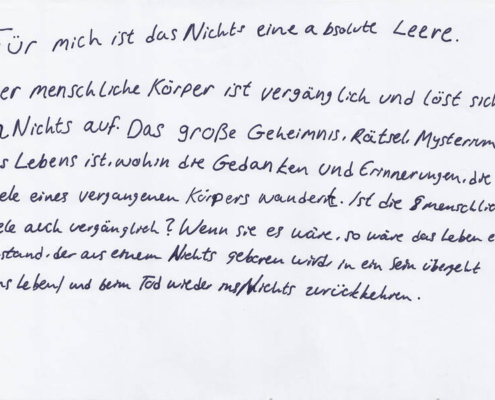 Für mich ist das Nichts eine absolute Leere.
er menschliche Körper ist vergänglich und löst sich
Nichts auf. Das große Geheimnis, Rätsel, Mysterium
s Lebens ist, wohin die Gedanken und Erinnerungen, die
ele eines vergangenen Körpers wandern. Ist die menschlic
ele auch vergänglich? Wenn sie es wäre, so wäre das Leben e
stand, der aus einem Nichts geboren wird, in ein Sein übergeht
s Leben/ und beim Tod wieder ins Nichts zurückkehren.